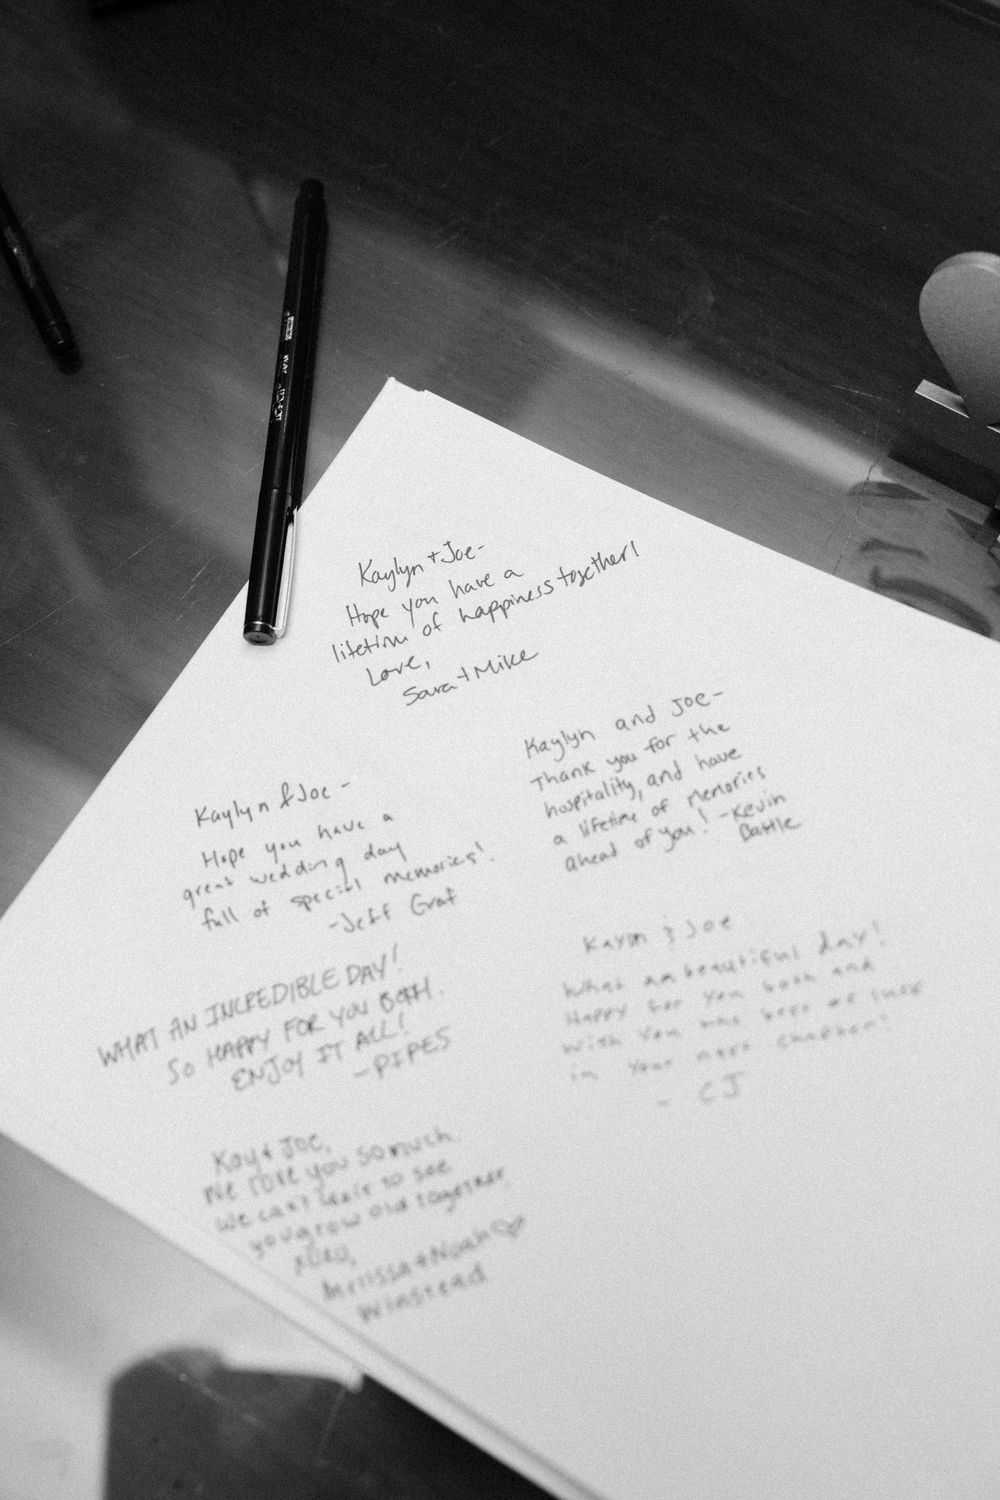 Kaylyn + Joe-
Hope you have a
lifetime of happiness together!
Love,
Sara + Mike
Kaylyn and Joe-
Thank you for the
hospitality, and have
a lifetime of memories
ahead of you! -Kevin
Battle
Kaylyn & Joe -
Hope you have a
great wedding day
full of special memories!
-Jeff Graf
WHAT AN INCREDIBLE DAY!
SO HAPPY FOR YOU BOTH.
ENJOY IT ALL!
-PIPES
& Joe
What an beautiful day!
Happy for you both and
wish you the best of luck
in your next chapter!
- CJ
Kay & Joe,
We love you so much.
We can't wait to see
you grow old together.
XOXO,
Melissa + Noah ♡
Winstead